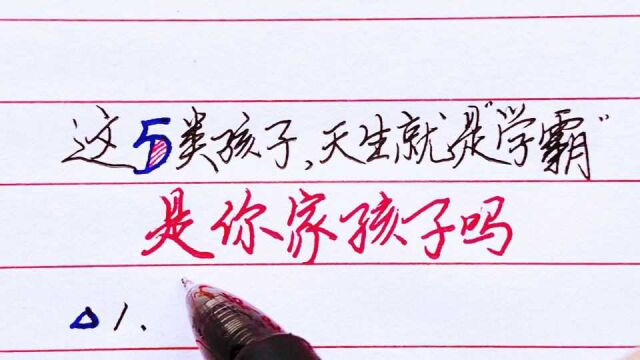 这5类孩子,天生就是"学霸"
是你家孩子吗
△1.